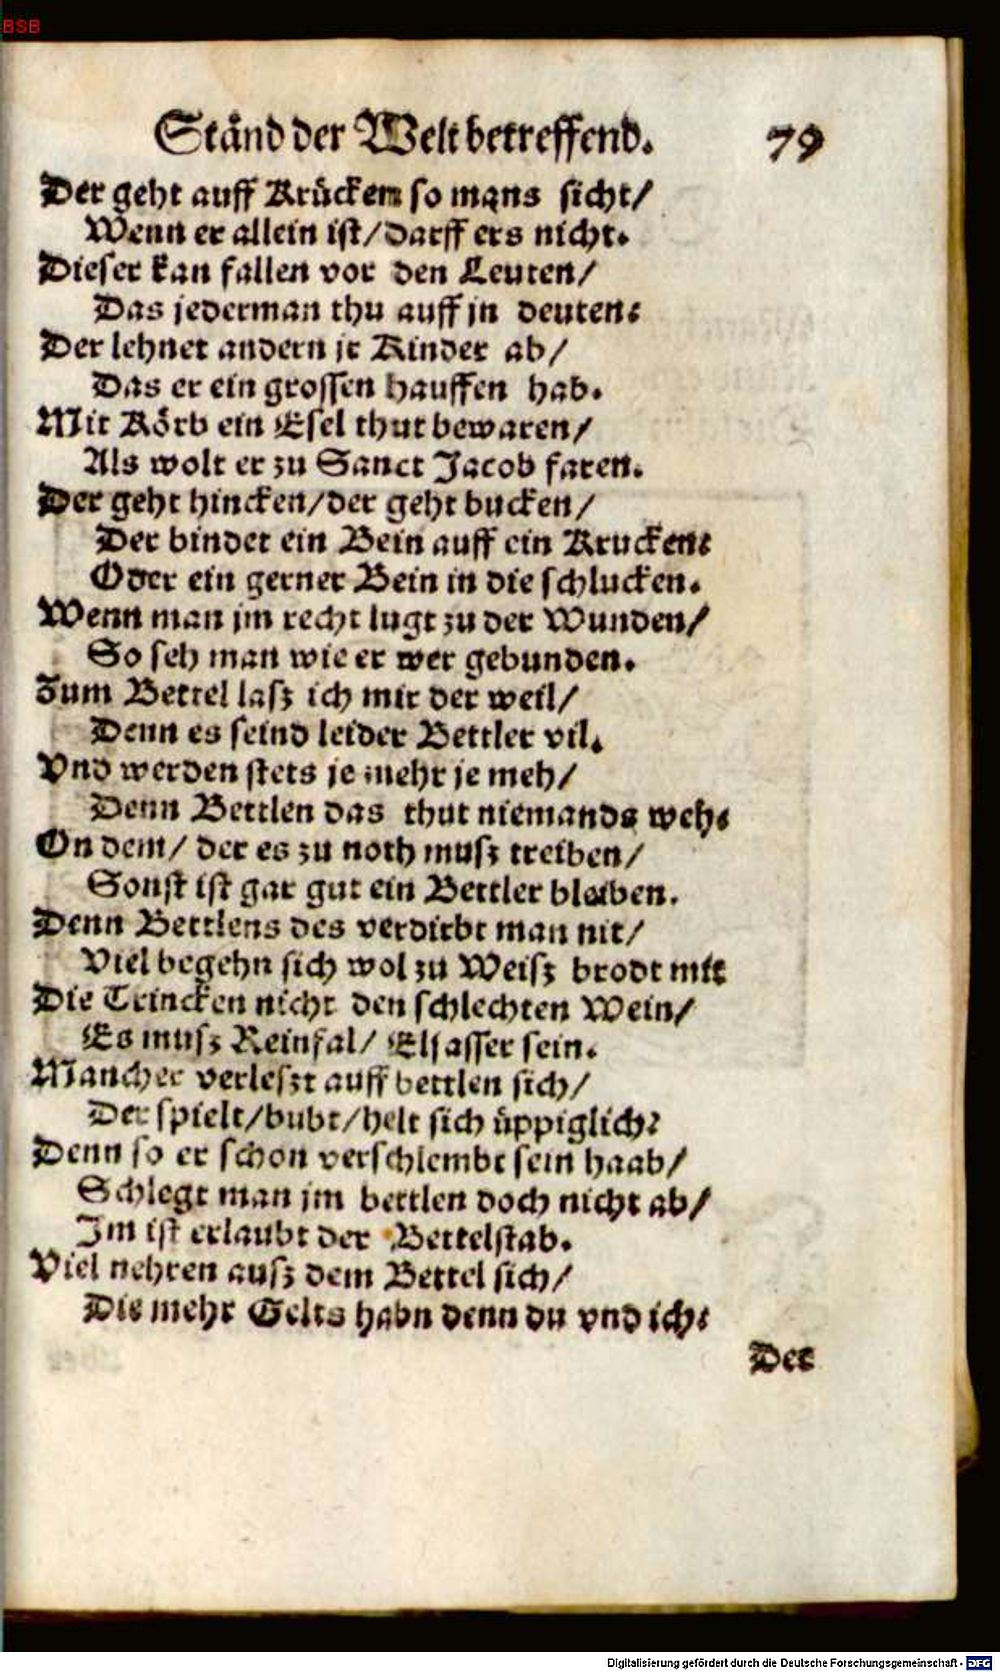 BSB
Ständ der Welt betreffend. 79
Der geht auff Krücken so mans sicht/
Wenn er allein ist/ darff ers nicht.
Dieser kan fallen vor den Leuten/
Das jederman thu auff jn deuten:
Der lehnet andern jr Kinder ab/
Das er ein grossen hauffen hab.
Mit Körb ein Esel thut bewaren/
Als wolt er zu Sanct Jacob faren.
Der geht hincken/ der geht bucken/
Der bindet ein Bein auff ein Krucken:
Oder ein gerner Bein in die schlucken.
Wenn man jm recht lugt zu der Wunden/
So seh man wie er wer gebunden.
Zum Bettel lasz ich mir der weil/
Denn es seind leider Bettler vil.
Vnd werden stets je mehr je meh/
Denn Bettlen das thut niemands weh:
On dem/ der es zu noth musz treiben/
Sonst ist gar gut ein Bettler bleiben.
Denn Bettlens des verdirbt man nit/
Viel begehn sich wol zu Weisz brodt mit
Die Trincken nicht den schlechten Wein/
Es musz Reinfal/ Elsasser sein.
Mancher verleszt auff bettlen sich/
Der spielt/ bubt/ helt sich üppiglich:
Denn so er schon verschlembt sein haab/
Schlegt man jm bettlen doch nicht ab/
Im ist erlaubt der Bettelstab.
Viel nehren ausz dem Bettel sich/
Die mehr Gelts habn denn du vnd ich:
Der
Digitalisierung gefördert durch die Deutsche Forschungsgemeinschaft - DFG